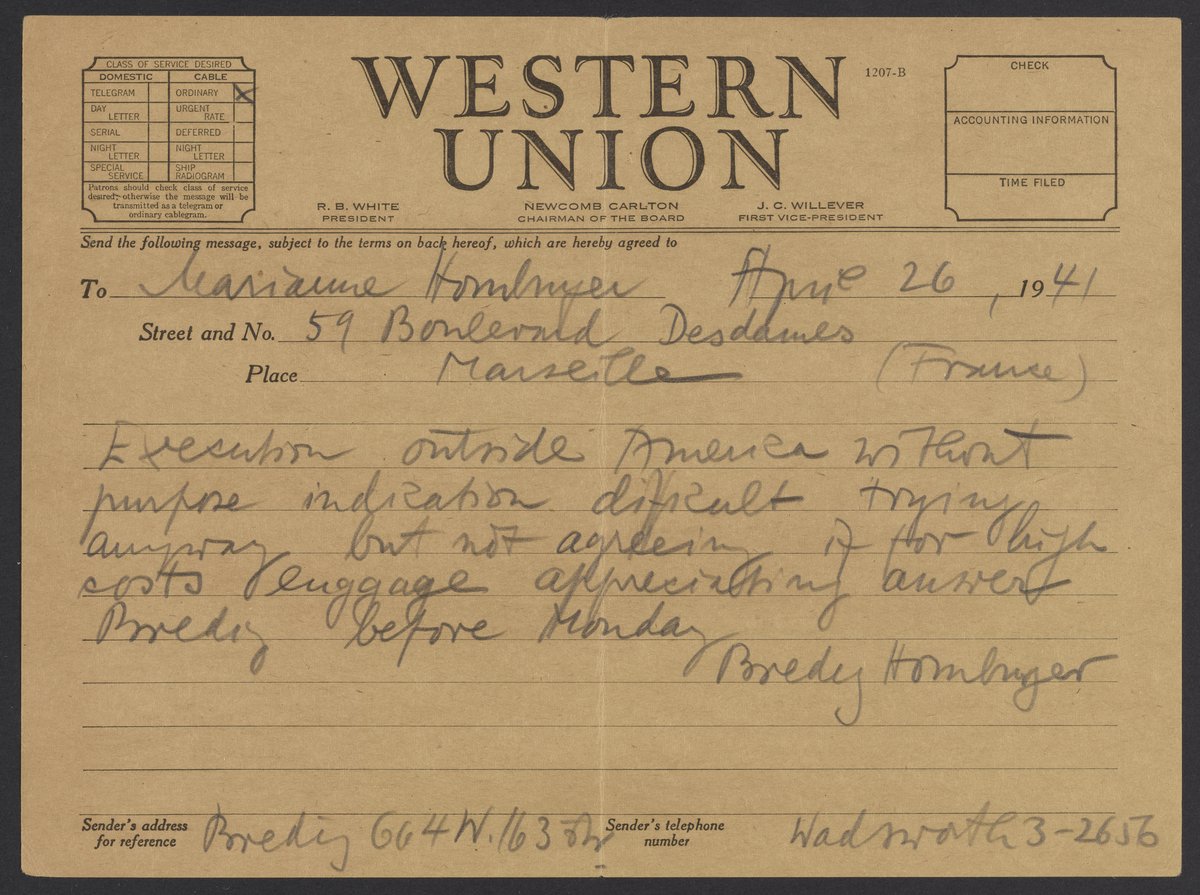 CLASS OF SERVICE DESIRED
DOMESTIC CABLE
TELEGRAM ORDINARY X
DAY LETTER URGENT RATE
SERIAL DEFERRED
NIGHT LETTER NIGHT LETTER
SPECIAL SERVICE SHIP RADIOGRAM
Patrons should check class of service
desired; otherwise the message will be
transmitted as a telegram or
ordinary cablegram.
WESTERN
UNION
1207-B
R. B. WHITE
PRESIDENT
NEWCOMB CARLTON
CHAIRMAN OF THE BOARD
J. C. WILLEVER
FIRST VICE-PRESIDENT
CHECK
ACCOUNTING INFORMATION
TIME FILED
Send the following message, subject to the terms on back hereof, which are hereby agreed to
To Marianne Homburger April 26, 1941
Street and No. 59 Boulevard Desdames
Place Marseille (France)
Execution outside America without
purpose indication difficult trying
anyway but not agreeing if for high
costs luggage appreciating answer
Bredig before Monday
Bredig Homburger
Sender's address
for reference
Bredig 664 W. 163 Str
Sender's telephone
number
Wadsworth 3-2656